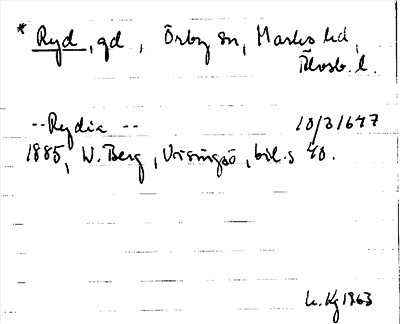 * Ryd, gd, Örby sn, Marks hd,
Älvsb. l.
-- Rydia -- 10/3 1647
1885, W. Berg, Visingsö, bil. s 40.
h. Kg 1963